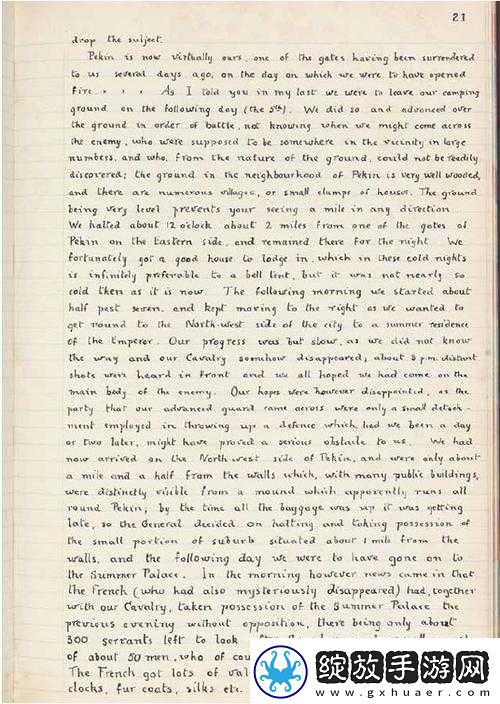 21
drop the subject.
Pekin is now virtually ours, one of the gates having been surrendered
to us several days ago, on the day on which we were to have opened
fire. . . . As I told you in my last we were to leave our camping
ground on the following day (the 5th). We did so and advanced over
the ground in order of battle, not knowing when we might come across
the enemy, who were supposed to be somewhere in the vicinity in large
numbers, and who, from the nature of the ground, could not be readily
discovered; the ground in the neighbourhood of Pekin is very well wooded,
and there are numerous villages, or small clumps of houses. The ground
being very level prevents your seeing a mile in any direction.
We halted about 12 o'clock about 2 miles from one of the gates of
Pekin on the Eastern side, and remained there for the night. We
fortunately got a good house to lodge in, which in these cold nights
is infinitely preferable to a bell tent, but it was not nearly so
cold then as it is now. The following morning we started about
half past seven, and kept moving to the right as we wanted to
get round to the North-West side of the city to a summer residence
of the Emperor. Our progress was but slow, as we did not know
the way and our Cavalry somehow disappeared, about 3 p.m. distant
shots were heard in front and we all hoped we had come on the
main body of the enemy. Our hopes were however disappointed, as the
party that our advanced guard came across were only a small detach-
ment employed in throwing up a defence which had we been a day
or two later, might have proved a serious obstacle to us. We had
now arrived on the North West side of Pekin, and were only about
a mile and a half from the walls which, with many public buildings,
were distinctly visible from a mound which apparently runs all
round Pekin; by the time all the baggage was up it was getting
late, so the General decided on halting and taking possession of
the small portion of suburb situated about 1 mile from the
walls, and the following day we were to have gone on to
the Summer Palace. In the morning however news came in that
the French (who had also mysteriously disappeared) had, together
with our Cavalry, taken possession of the Summer Palace the
previous evening without opposition, there being only about
300 servants left to look
of about 50 men, who of
The French got lots of
clocks, fur coats, silks etc.
绽放手游网
www.gxhuaer.com